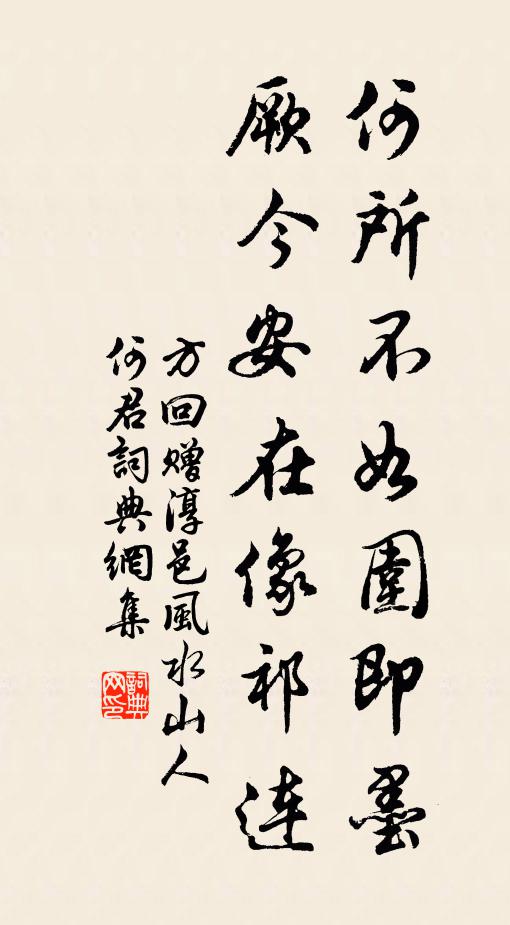 何所不如圍即墨
厥今安在像祁連
方回贈淳邑風水山人
何君詞典網集
詞典网印